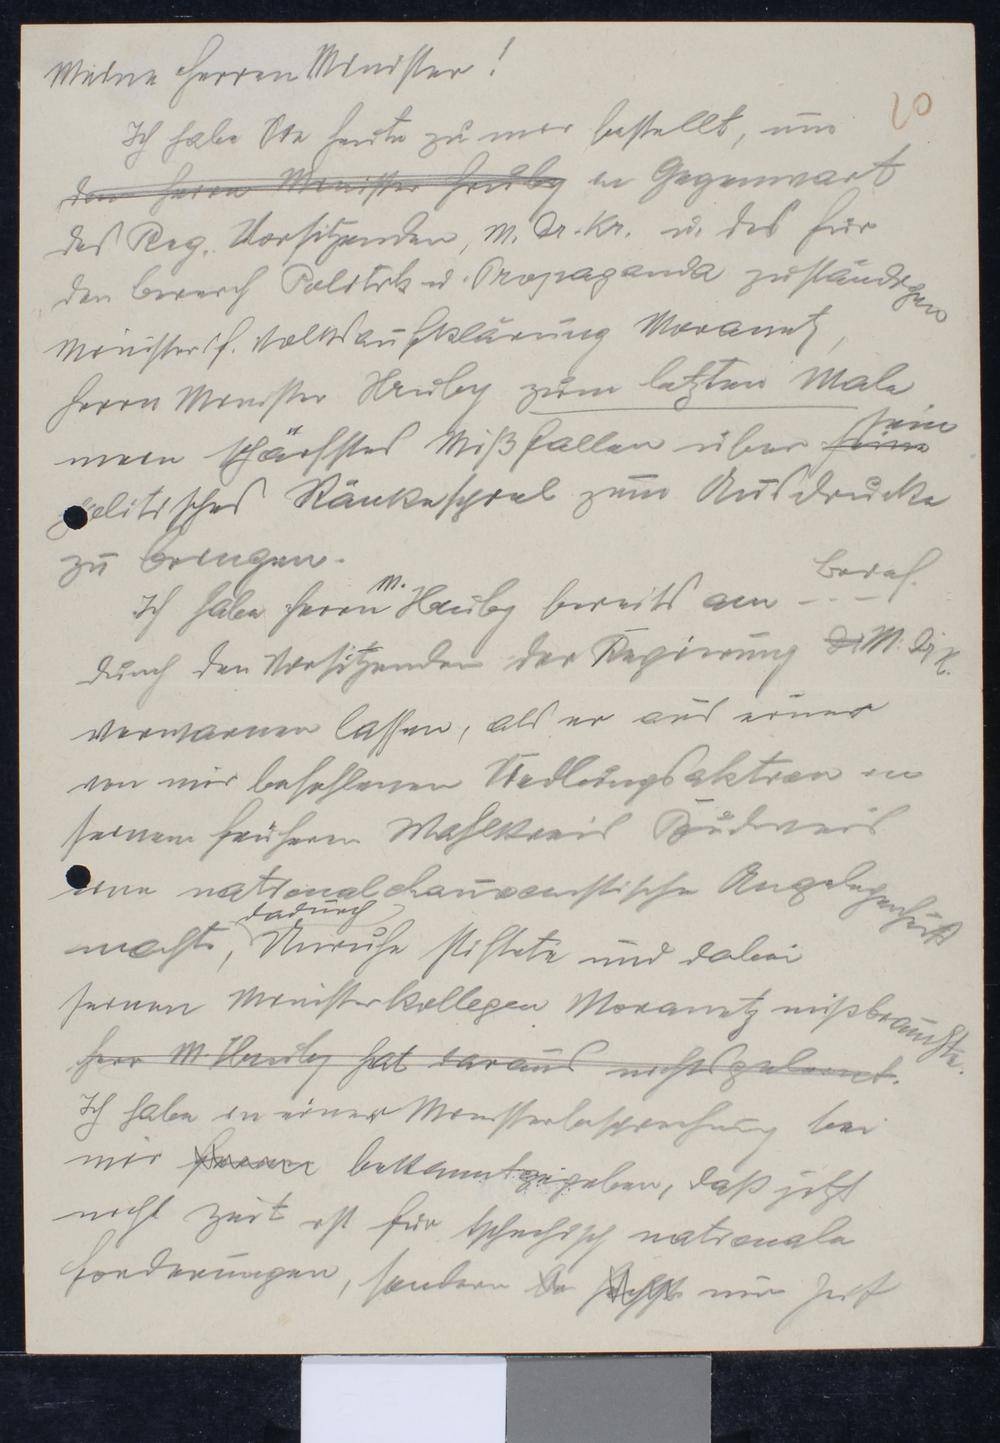 Meine Herren Minister!
20
Ich habe Sie heute zu mir bestellt, um
den Herrn Minister Hruby in Gegenwart
des Reg. Vorsitzenden, M. Dr. Kr. u. des für
den Bereich Politik u. Propaganda zuständigen
Ministers f. Volksaufklärung Moravetz,
Herrn Minister Hruby zum letzten Male
mein schärfstes Mißfallen über seine sein
politisches Ränkespiel zum Ausdrucke
zu bringen.
Ich habe Herrn M. Hruby bereits am - . - - Beraf.
durch den Vorsitzenden der Regierung M. Dr. K.
verwarnen lassen, als er aus einer
von mir befohlenen Siedlungsaktion in
seinem frühern Wahlkreis Budweis
eine nationalchauvinistische Angelegenheit
machte, dadurch Unruhe stiftete und dabei
seinen Ministerkollegen Moravetz mißbrauchte.
Herr M. Hruby hat daraus nichts gelernt.
Ich habe in einer Ministerbesprechung bei
mir bekanntgegeben, daß jetzt
nicht Zeit ist für tschechisch nationale
Forderungen, sondern nur Zeit